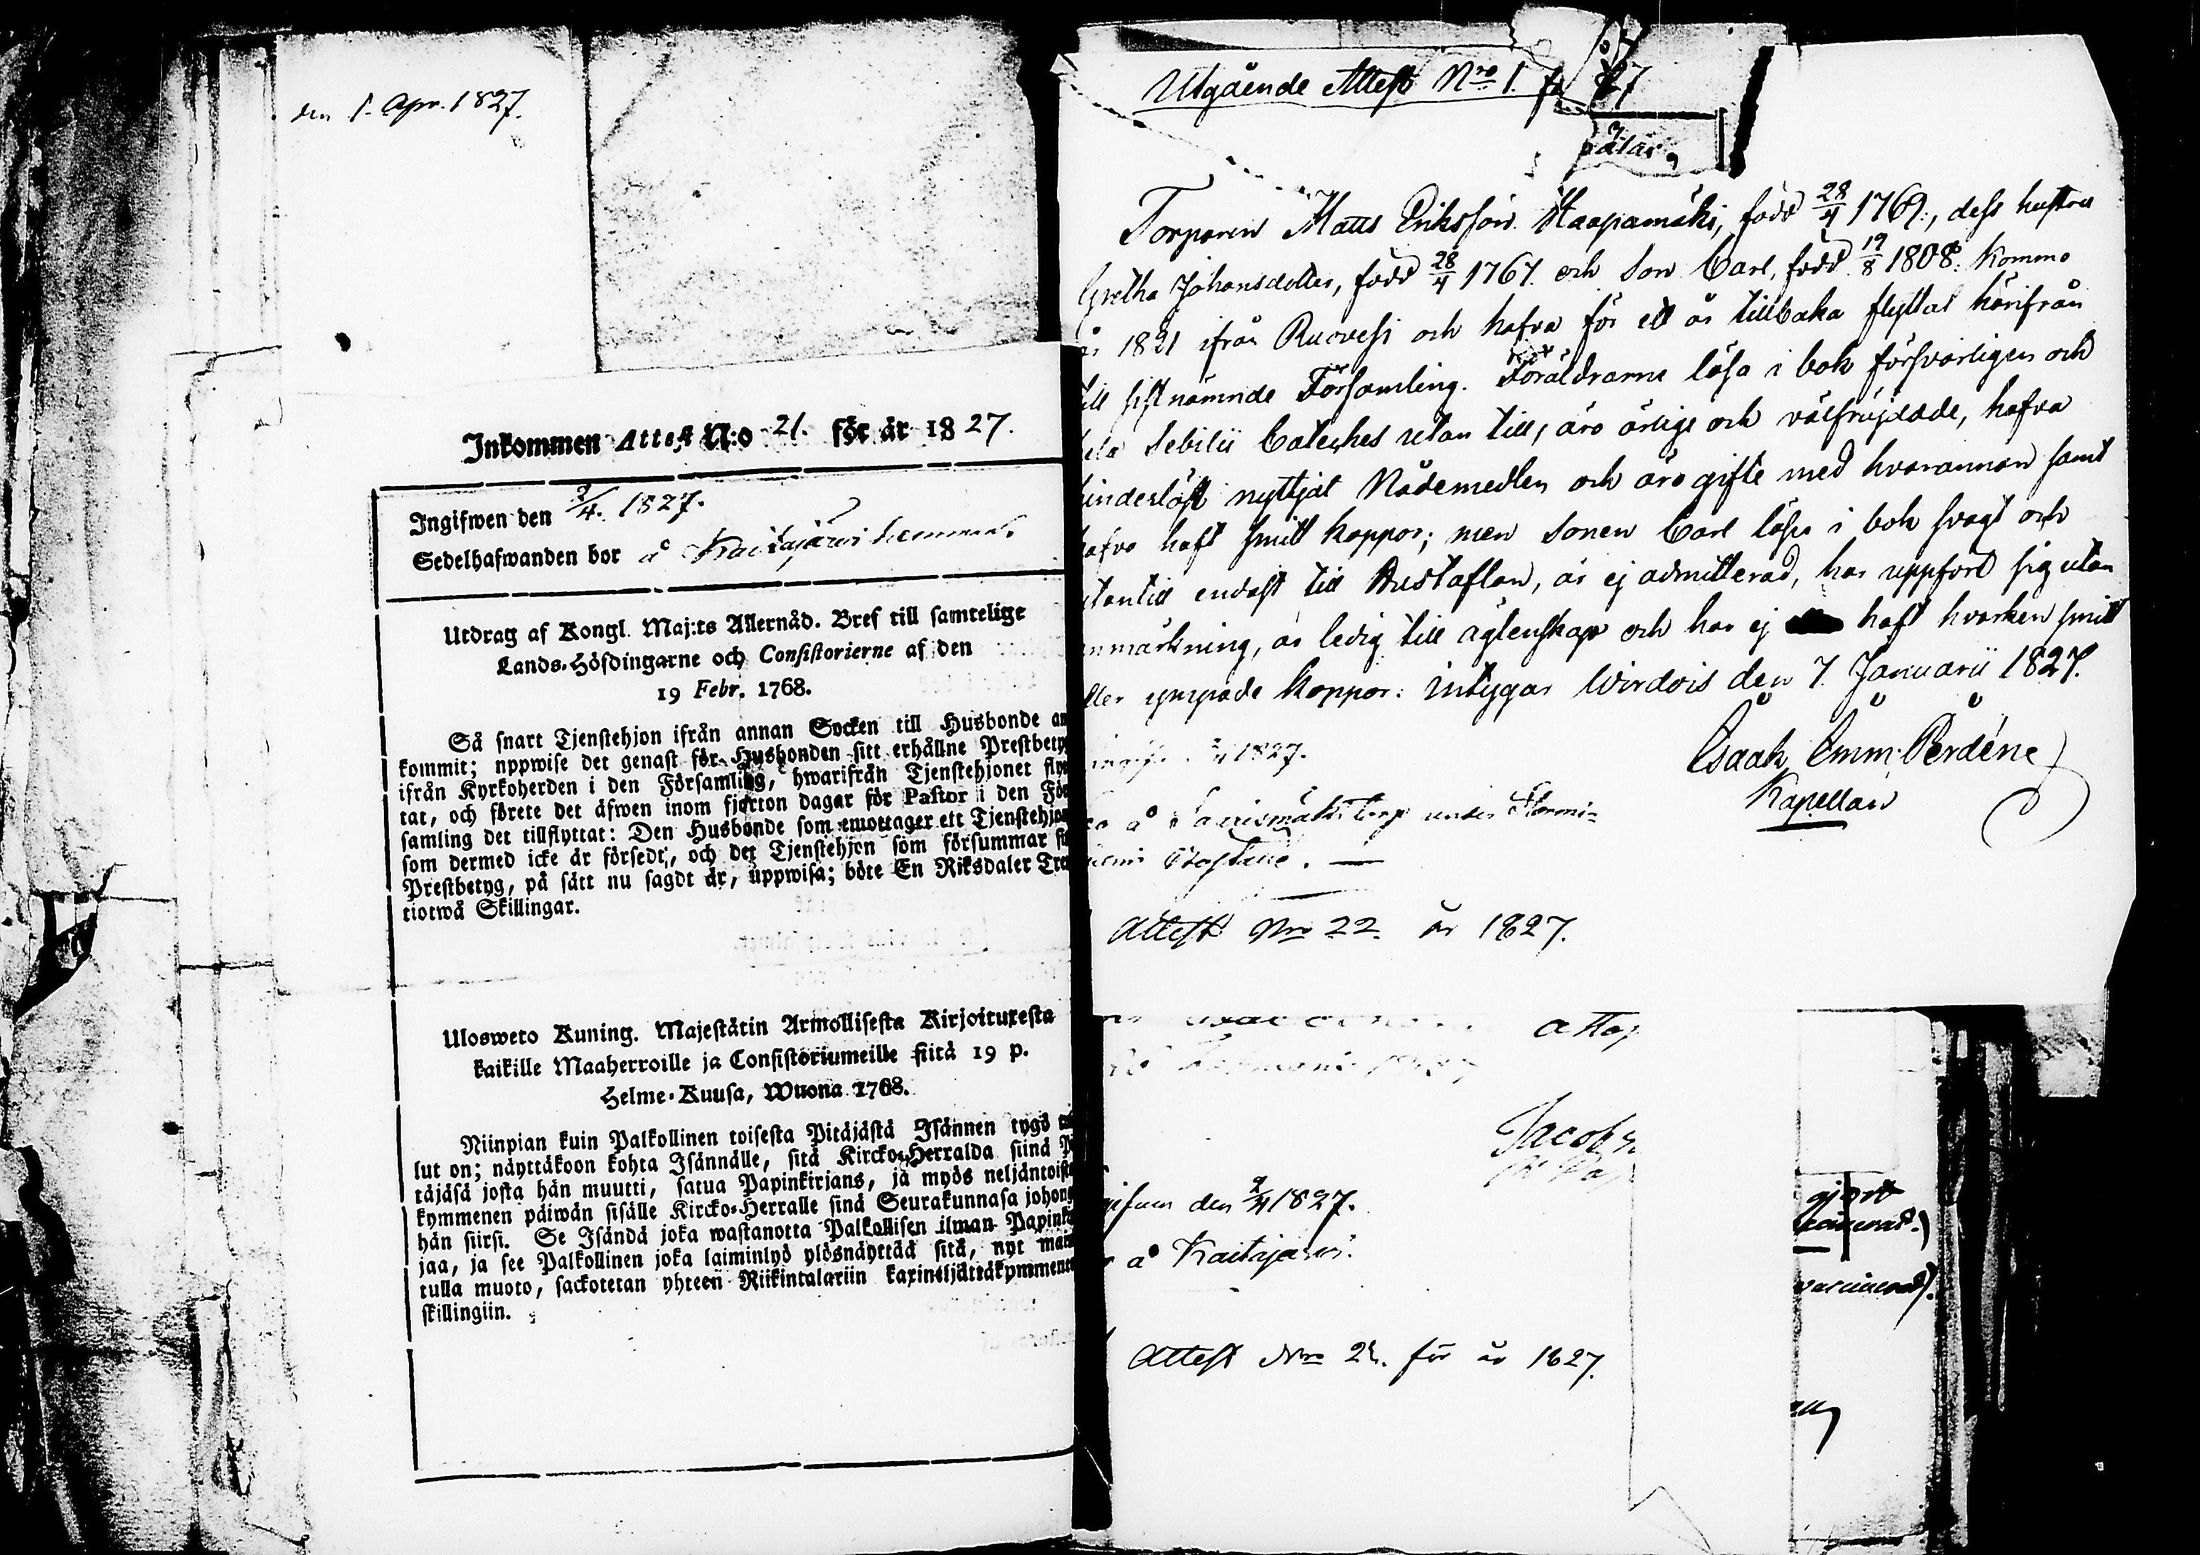 den 1. Apr. 1827.
Inkommen Attest N:o 21. för år 1827.
Ingifwen den 2/4. 1827.
Sedelhafwanden bor å Kaitajärvi hemman.
Utdrag af Kongl. Maj:ts Allernåd. Bref till samtelige
Lands-Höfdingarne och Consistorierne af den
19 Febr. 1768.
Så snart Tjenstehjon ifrån annan Socken till Husbonde an
kommit; uppwise det genast för Husbonden sitt erhållne Prestbety
ifrån Kyrkoherden i den Församling, hwarifrån Tjenstehjonet fly
tat, och förete det äfwen inom fjorton dagar för Pastor i den För
samling det tillflyttat: Den Husbonde som emottager ett Tjenstehjon
som dermed icke är försedt, och det Tjenstehjon som försummar
Prestbetyg, på sätt nu sagdt är, uppwisa; böte En Riksdaler Tre
tiotwå Skillingar.
Ulosweto Kuning. Majestätin Armollisesta Kirjoituxesta
kaikille Maaherroille ja Consistoriumeille siitä 19 p.
Helme-Kuusa, Wuona 1768.
Niinpian kuin Palkollinen toisesta Pitäjästä Isännen tygö
lut on; näyttäkoon kohta Isännälle, sitä Kircko-Herralda siinä
täjäsä josta hän muutti, satua Papinkirjans, ja myös neljäntoist
kymmenen päiwän sisälle Kircko-Herralle sinä Seurakunnasa johong
hän siirsi. Se Isändä joka wastanotta Palkollisen ilman Papinki
jaa, ja see Palkollinen joka laiminlyö ylösnäyttää sitä, nyt
tulla muoto, sackotetan yhteen Riikintalariin kaxineljättäkymmenen
skillingiin.
Utgående Attest Nro 1. 27
Torparen Matts Eriksson Haapamäki, född 28/4 1769, dess hustru
Gretha Johansdotter, född 28/4 1767. och Son Carl, född 19/8 1808. komma
år 1821 ifrån Ruovesi och hafva för ett år tillbaka flyttat härifrån
till sistnämnde Församling. Föräldrarne läsa i bok försvarligen och
hela Sebilii Cateches utan till, äro ärlige och välfrejdade, hafva
hinderlöst nyttjat Nådemedlen och äro gifte med hvarannan samt
hafva haft smitt koppor; men Sonen Carl läser i bok svagt och
utantill endast till Hustaflan, är ej admitterad, har uppfört sig utan
anmärkning, är ledig till ägtenskap och har ej haft hvarken smitt
eller ympade koppor. intygar Wirdois den 7. Januarii 1827.
Isaak Emm: Perdéne
Kapellan
1827.
Torp under
Attest Nro 22. år 1827.
Attes
Jacob
ifven den 2/4 1827.
å Kaitajärvi.
Attest Nro 23. för år 1827.